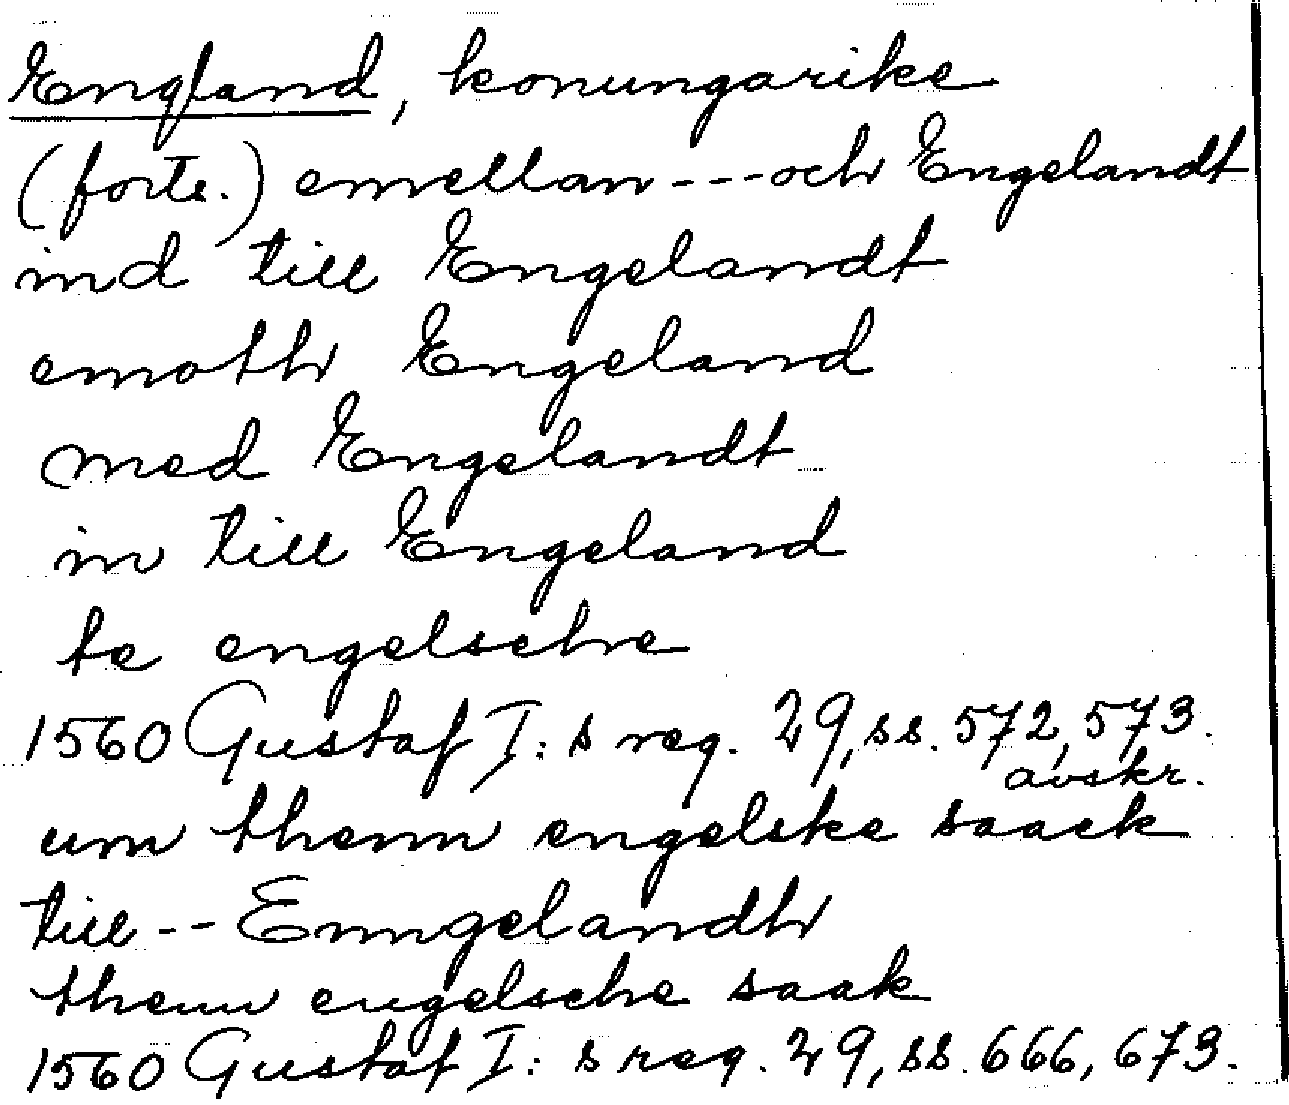 England, konungarike
(forts.) emellan---och Engelandt
ind till Engelandt
emoth Engeland
med Engelandt
in till Engeland
te engelsche
1560 Gustaf I:s reg. 29, ss. 572, 573.
avskr.
um thenn engelske saack
till -- Enngelandh
thenn engelsche saak
1560 Gustaf I:s reg. 29, ss. 666, 673.